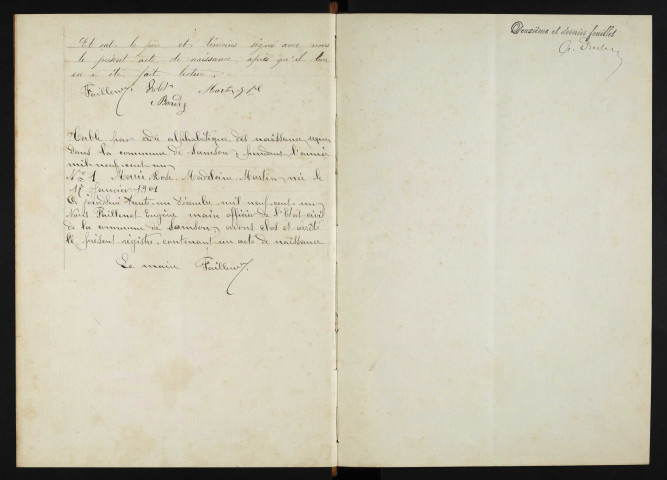 Et ont le père et témoins signé avec nous
le présent acte de naissance après qu'il leur
en a été fait lecture.
Faillenet
Table par ordre alphabétique des naissances reçues
dans la commune de Samson, pendant l'année
mil neuf cent un
N° 1 Marie Rose Madeleine Martin, née le
17 Janvier 1901
Ce jourd'hui trente-un décembre mil neuf cent un
Nous Faillenet Eugène maire officier de l'Etat-civil
de la commune de Samson, avons clos et arrêté
le présent registre contenant un acte de naissance
Le maire Faillenet
Deuxième et dernier feuillet